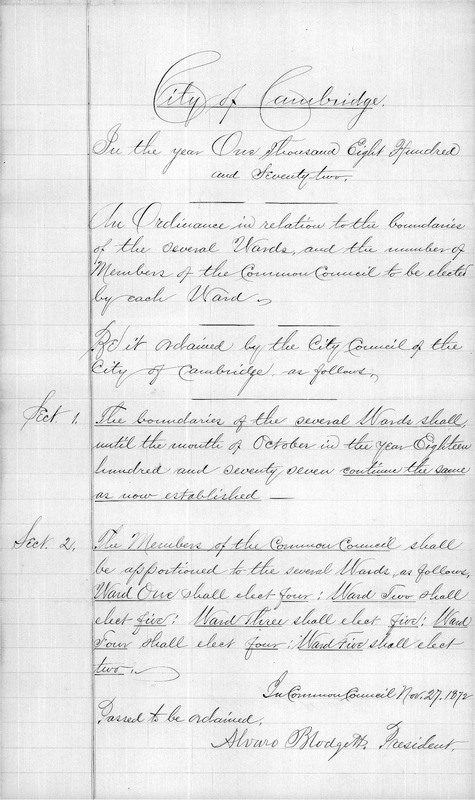 City of Cambridge.
In the year One Thousand Eight Hundred
and Seventy two.
An Ordinance in relation to the boundaries
of the several Wards, and the number of
Members of the Common Council to be elected
by each Ward
Be it ordained by the City Council of the
City of Cambridge as follows,
Sect 1. The boundaries of the several Wards shall,
until the month of October in the year Eighteen
hundred and seventy seven continue the same
as now established —
Sect. 2. The Members of the Common Council shall
be apportioned to the several Wards, as follows,
Ward One shall elect four; Ward Two shall
elect five; Ward Three shall elect five; Ward
Four shall elect four; Ward Five shall elect
two.
In Common Council Nov. 27. 1872
Passed to be ordained.
Alvaro Blodgett, President.